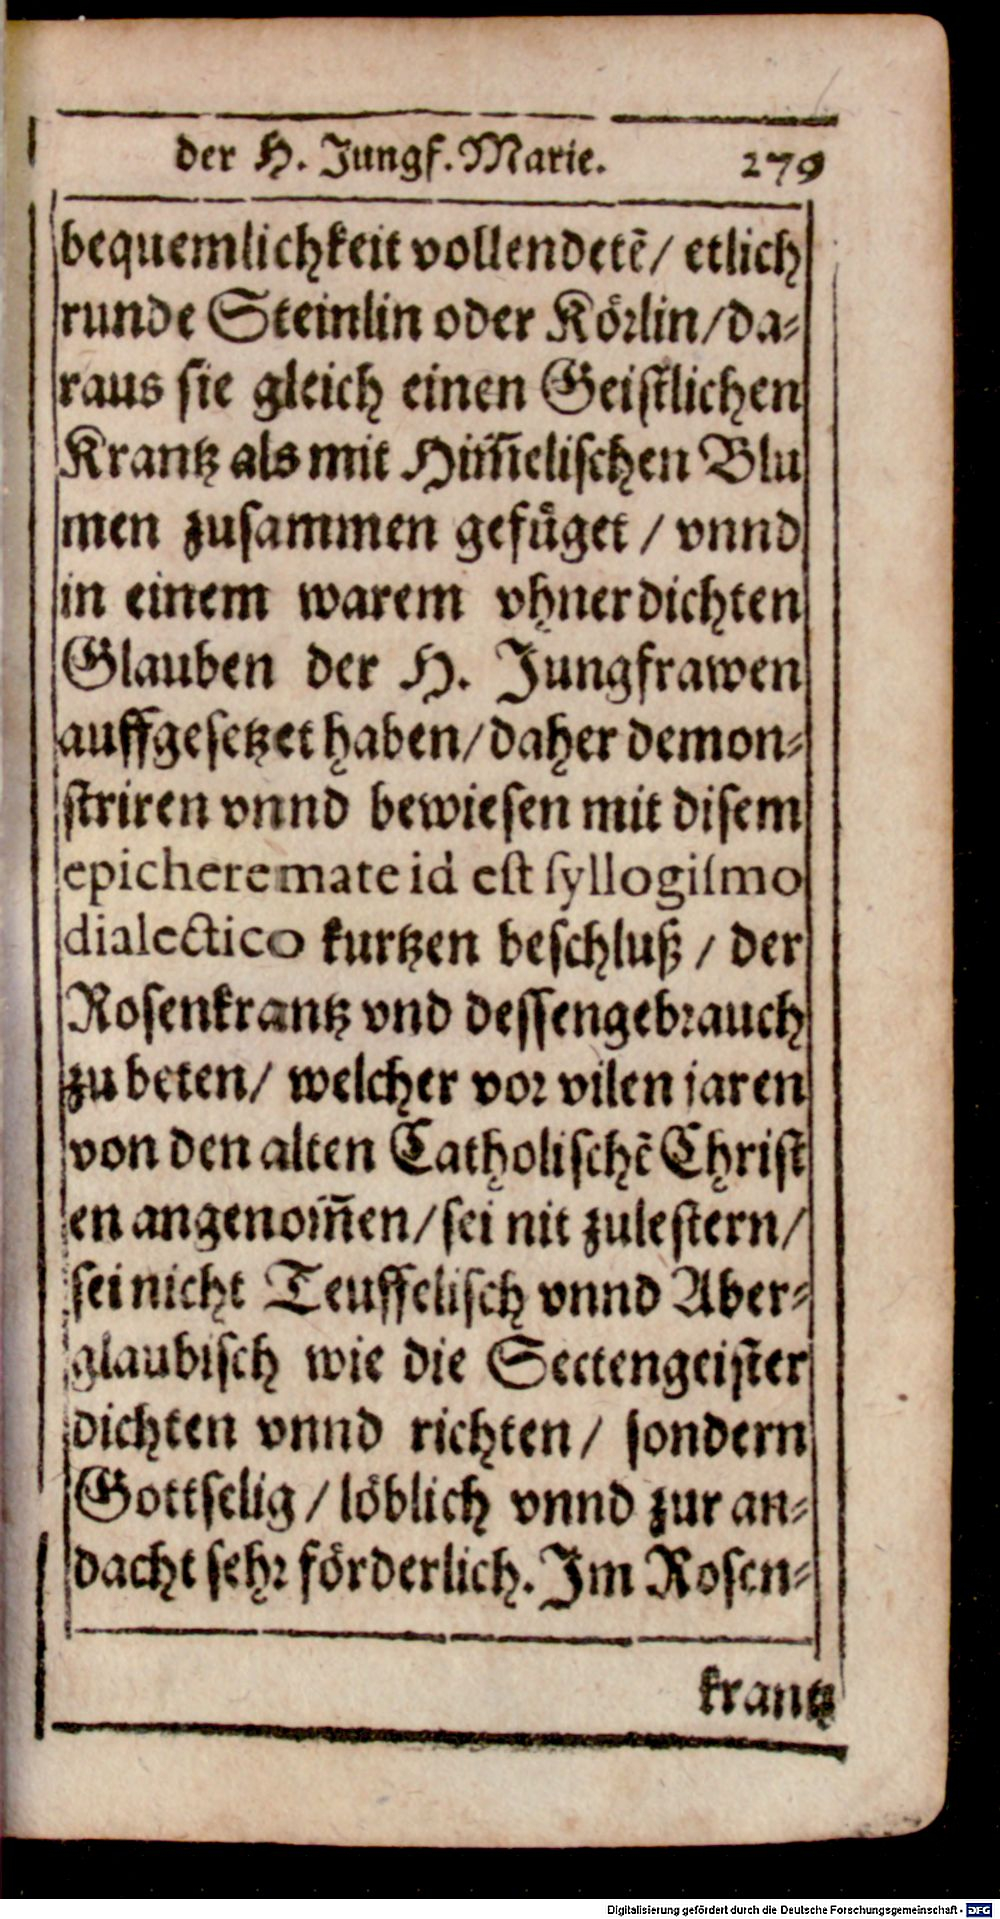 der H. Jungf. Marie. 279
bequemlichkeit vollendetẽ/ etlich
runde Steinlin oder Koͤrlin/da⸗
raus sie gleich einen Geistlichen
Krantz als mit Him̃elischen Blu
men zusammen gefuͤget / vnnd
in einem warem vhnerdichten
Glauben der H. Jungfrawen
auffgesetzet haben/daher demon⸗
striren vnnd bewiesen mit disem
epicheremate id est syllogismo
dialectico kurtzen beschluß / der
Rosenkrantz vnd dessengebrauch
zu beten/ welcher vor vilen jaren
von den alten Catholischẽ Christ
en angenom̃en/sei nit zulestern/
sei nicht Teuffelisch vnnd Aber⸗
glaubisch wie die Sectengeister
dichten vnnd richten/ sondern
Gottselig / loͤblich vnnd zur an⸗
dacht sehr foͤrderlich. Im Rosen⸗
krantz
Digitalisierung gefördert durch die Deutsche Forschungsgemeinschaft - DFG